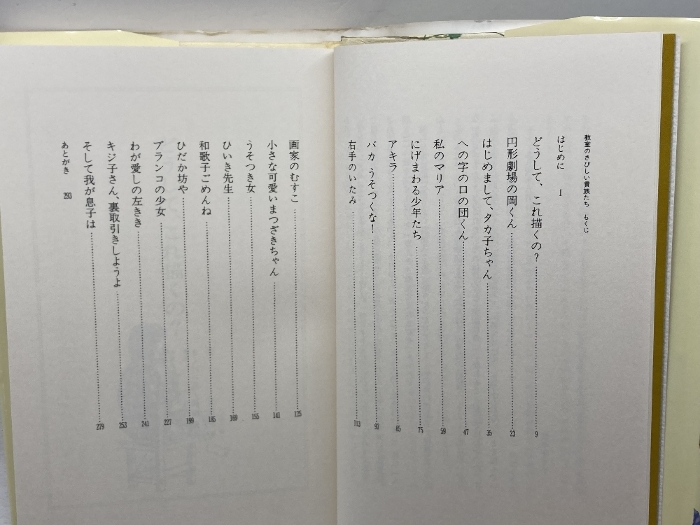 教室のさびしい貴族たち もくじ
はじめに 1
どうして、これ描くの？ 9
円形劇場の岡くん 23
はじめまして、タカ子ちゃん 35
への字の口の団くん 47
私のマリア 59
にげまわる少年たち 75
アキラ 85
バカ、うそつくな！ 93
右手のいたみ 113
画家のむすこ 125
小さな可愛いまつざきちゃん 141
うそつき女 155
ひいき先生 169
和歌子ごめんね 185
ひだか坊や 199
ブランコの少女 221
わが愛しの左きき 241
キジ子さん、裏取引きしようよ 253
そして我が息子は 279
あとがき 293